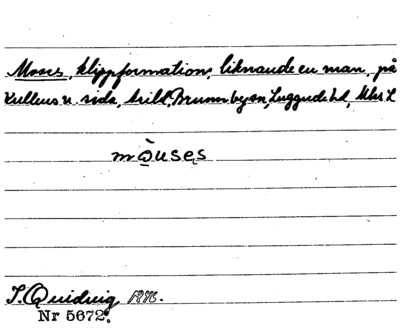 Moses, klippformation, liknande en man, på
Kullens n. sida, Arild, Brunnbysn, Luggude hd, Mhs L
mǫuses
I. Quidvig 1976.
Nr 5672.